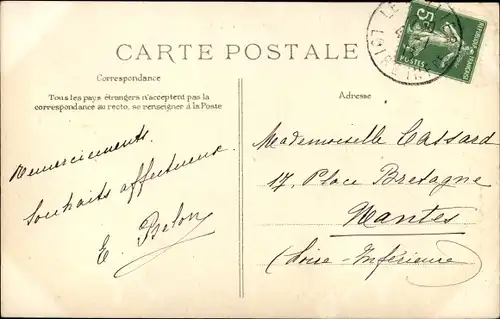 CARTE POSTALE
Correspondance
Tous les pays étrangers n'acceptent pas la
correspondance au recto, se renseigner à la Poste
Remerciements.
Souhaits affectueux.
E. Belon
Adresse
Mademoiselle Cassard
17, Place Bretagne
Nantes
(Loire-Inférieure)
5
POSTES